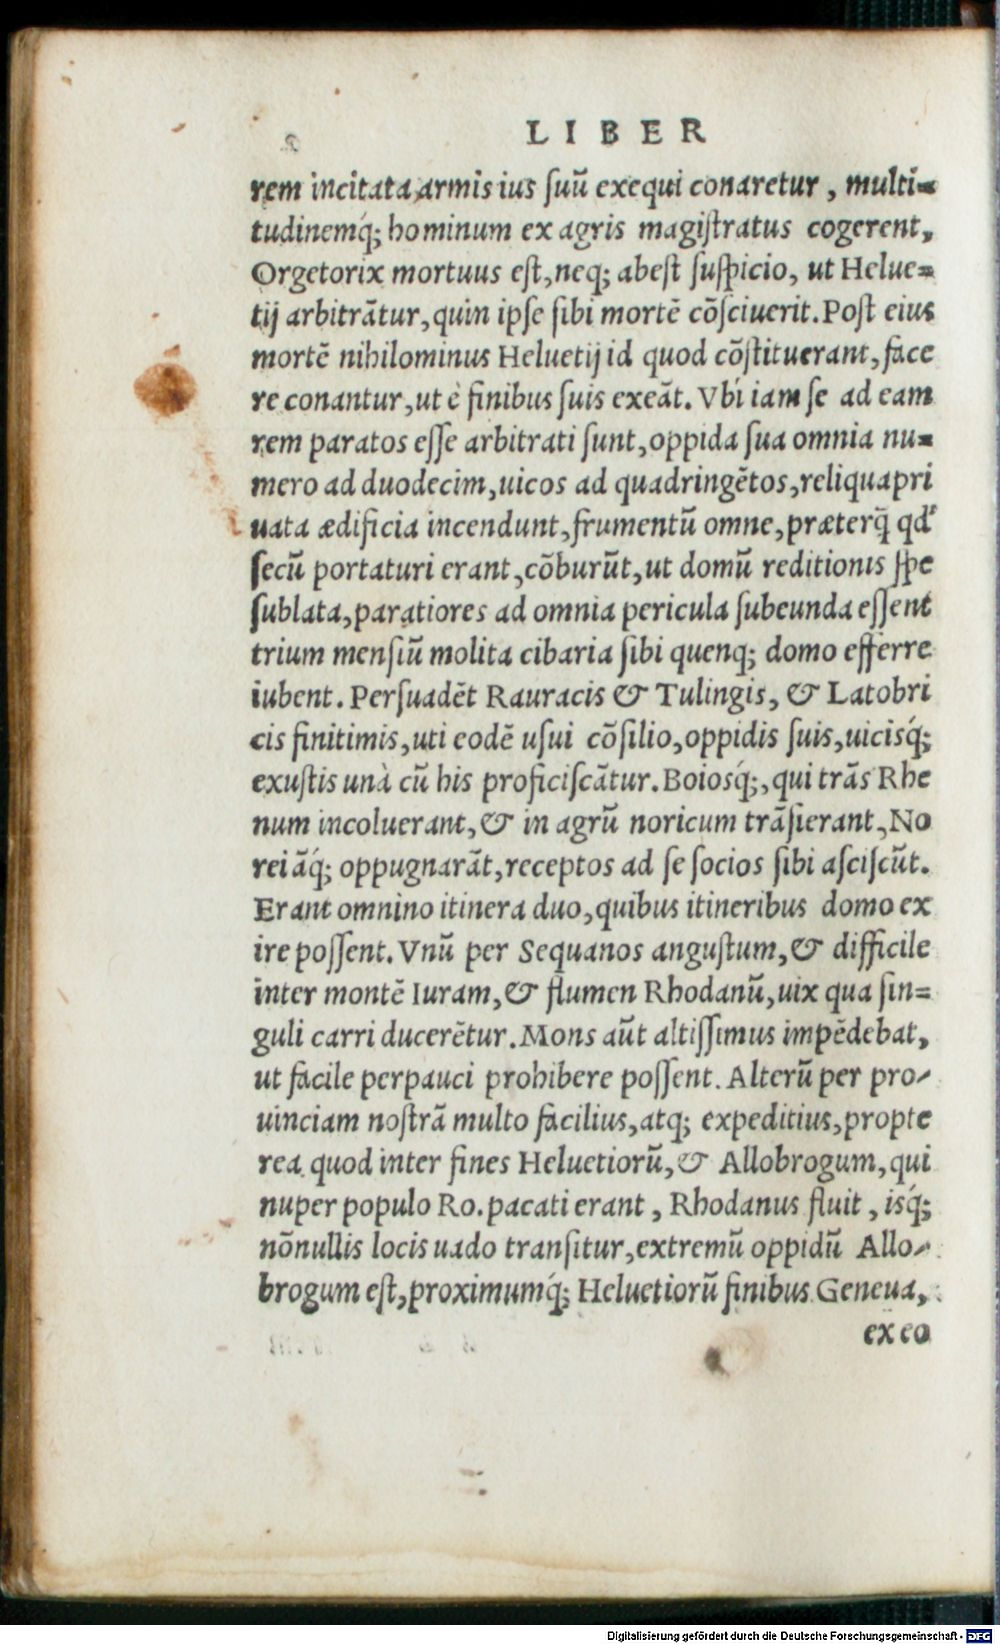 LIBER
rem incitata armis ius ſuũ exequi conaretur, multi=
tudinemq́; hominum ex agris magiſtratus cogerent,
Orgetorix mortuus eſt, neq; abeſt ſuſpicio, ut Helue=
tij arbitrãtur, quin ipſe ſibi mortẽ cõſciuerit. Poſt eius
mortẽ nihilominus Heluetij id quod cõſtituerant, face
re conantur, ut è finibus ſuis exeãt. Vbi iam ſe ad eam
rem paratos eſſe arbitrati ſunt, oppida ſua omnia nu=
mero ad duodecim, uicos ad quadringẽtos, reliqua pri
uata ædificia incendunt, frumentũ omne, præterq̃ qd'
ſecũ portaturi erant, cõburũt, ut domũ reditionis ſpe
ſublata, paratiores ad omnia pericula ſubeunda eſſent
trium menſiũ molita cibaria ſibi quenq; domo efferre
iubent. Perſuadẽt Rauracis & Tulingis, & Latobri
cis finitimis, uti eodẽ uſui cõſilio, oppidis ſuis, uicisq́;
exuſtis unà cũ his proficiſcãtur. Boiosq́;, qui trãs Rhe
num incoluerant, & in agrũ noricum trãſierant, No
reiãq́; oppugnarãt, receptos ad ſe ſocios ſibi aſciſcũt.
Erant omnino itinera duo, quibus itineribus domo ex
ire poſſent. Vnũ per Sequanos anguſtum, & difficile
inter montẽ Iuram, & flumen Rhodanũ, uix qua ſin=
guli carri ducerẽtur. Mons aũt altiſſimus impẽdebat,
ut facile perpauci prohibere poſſent. Alterũ per pro-
uinciam noſtrã multo facilius, atq; expeditius, propte
rea quod inter fines Heluetiorũ, & Allobrogum, qui
nuper populo Ro. pacati erant, Rhodanus fluit, isq́;
nõnullis locis uado tranſitur, extremũ oppidũ Allo-
brogum eſt, proximumq́; Heluetiorũ finibus Geneua,
ex eo
Digitalisierung gefördert durch die Deutsche Forschungsgemeinschaft - DFG